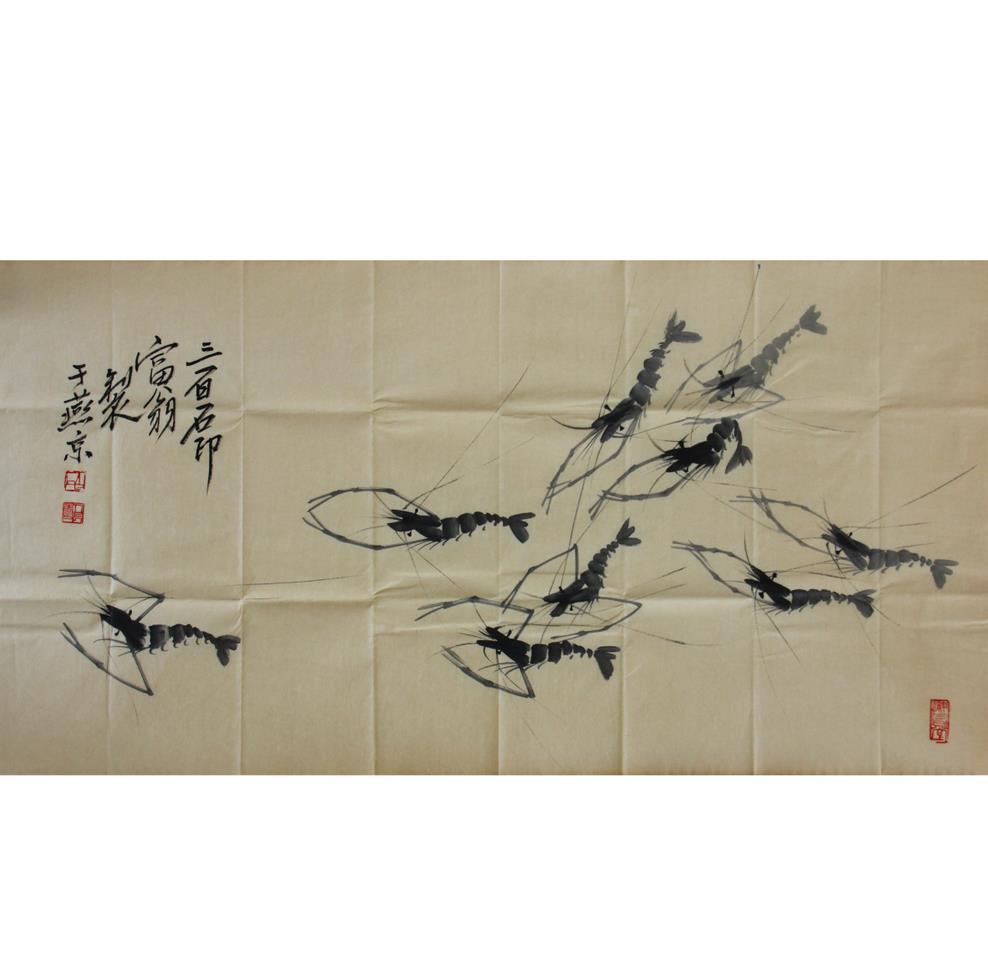 三百石印
富翁
製
于燕京